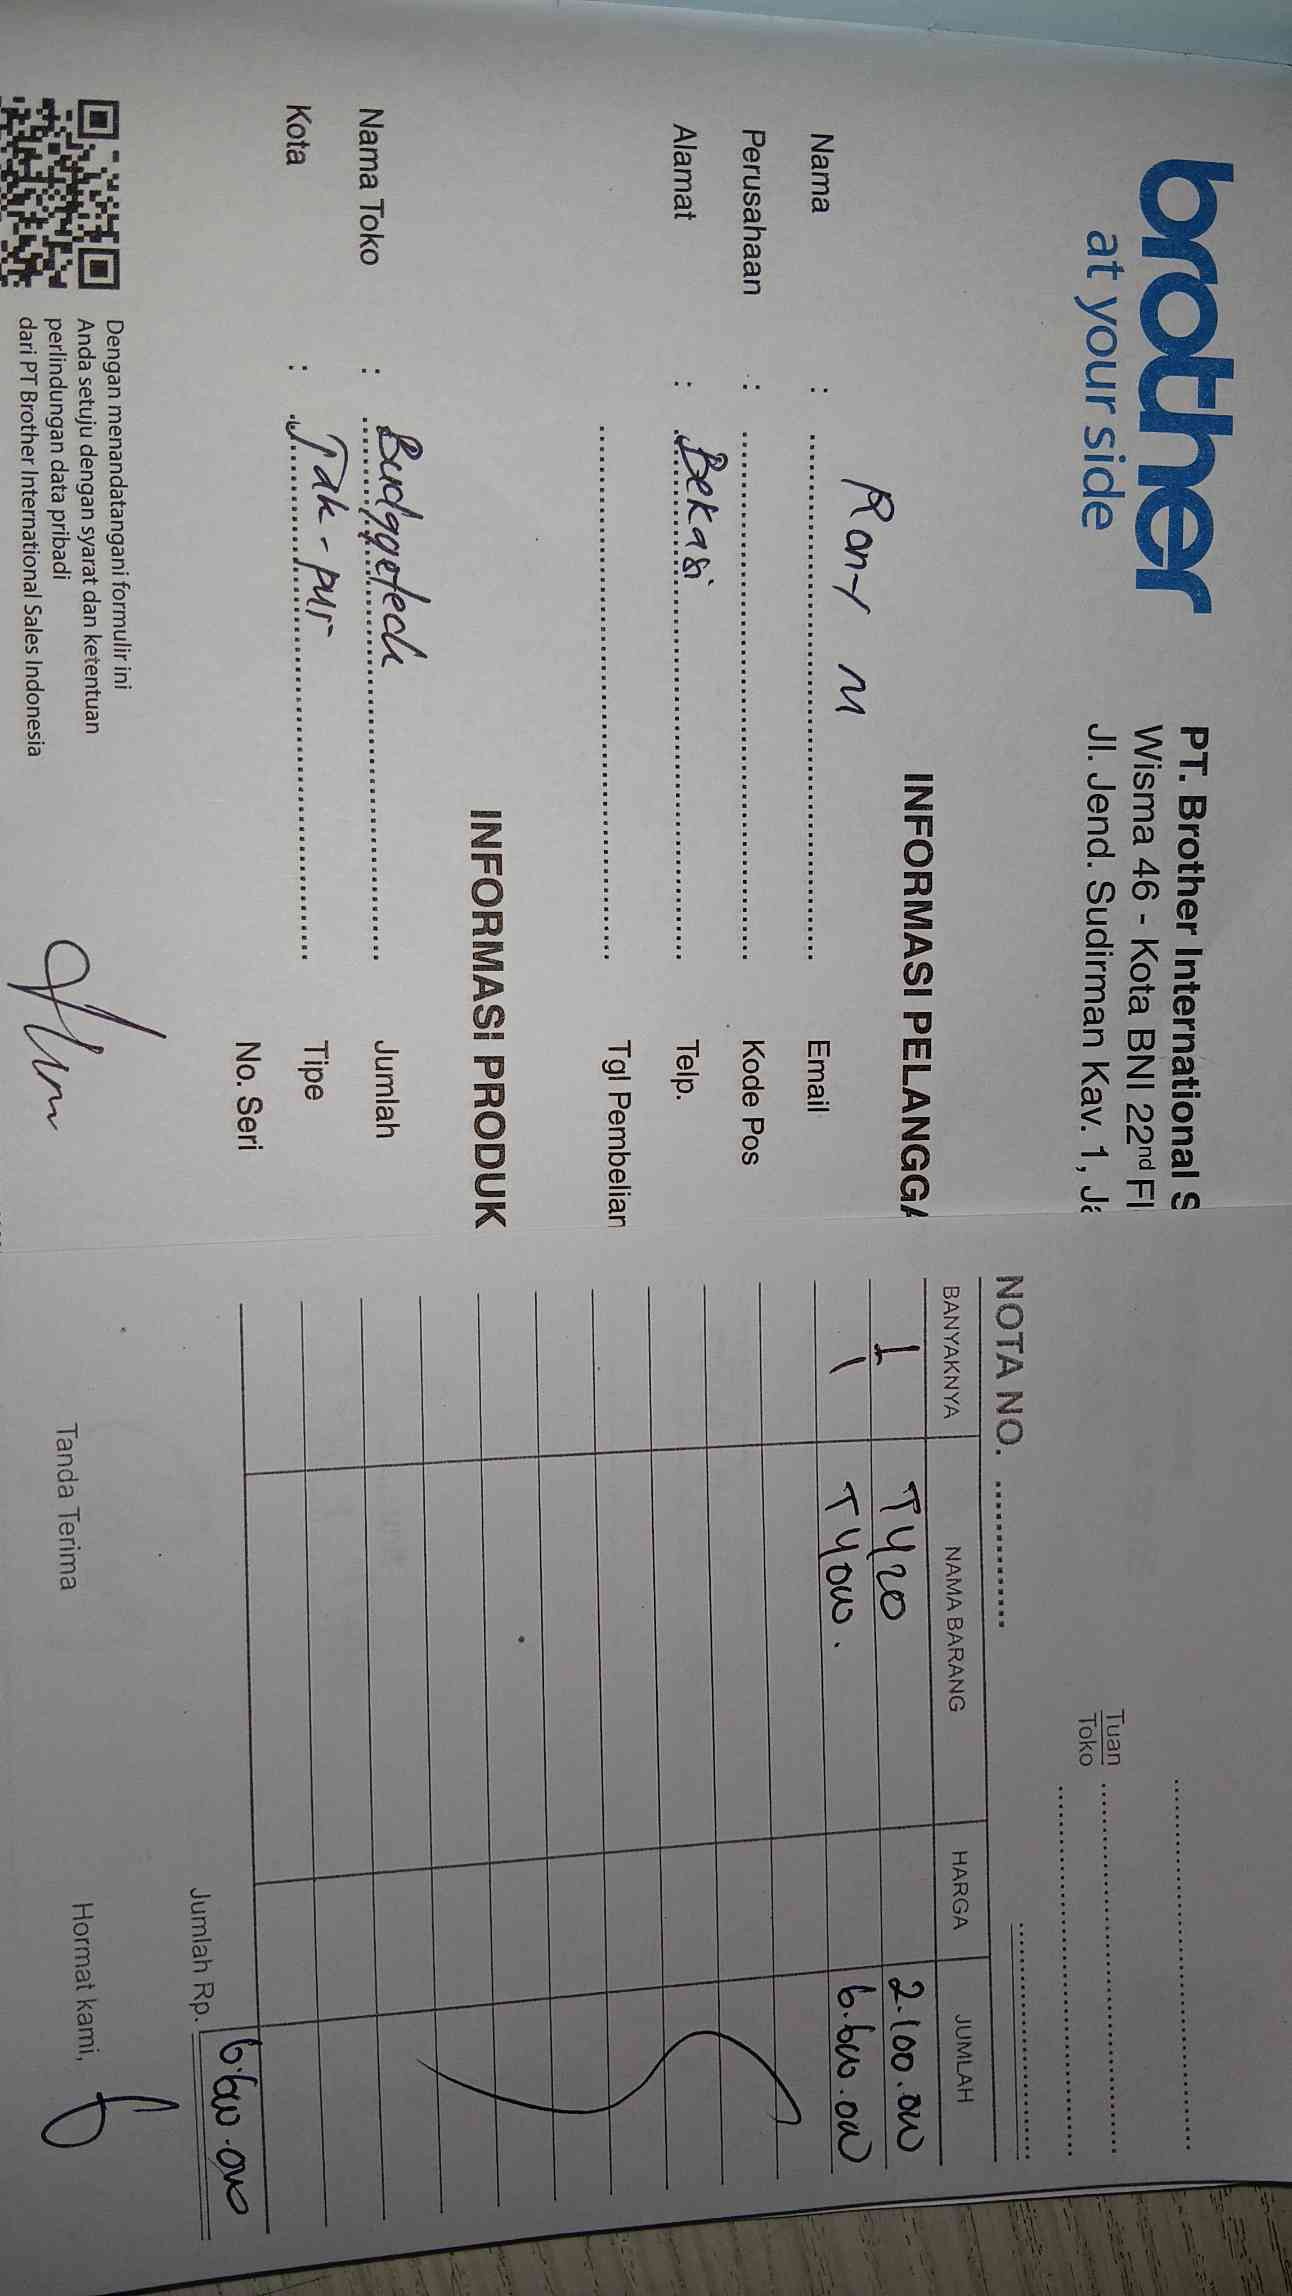 brother
at your side
PT. Brother International S
Wisma 46 - Kota BNI 22nd Fl
Jl. Jend. Sudirman Kav. 1, Ja
INFORMASI PELANGGA
Nama : Rony M
Perusahaan :
Alamat : Bekasi
Email
Kode Pos
Telp.
Tgl Pembelian
INFORMASI PRODUK
Nama Toko : Budggetech
Kota : Jak-pur
Jumlah
Tipe
No. Seri
Dengan menandatangani formulir ini
Anda setuju dengan syarat dan ketentuan
perlindungan data pribadi
dari PT Brother International Sales Indonesia
Tuan
Toko
NOTA NO.
BANYAKNYA NAMA BARANG HARGA JUMLAH
1 T420 2.100.000
1 T4000. 6.600.000
Jumlah Rp. 6.600.000
Tanda Terima
Hormat kami,